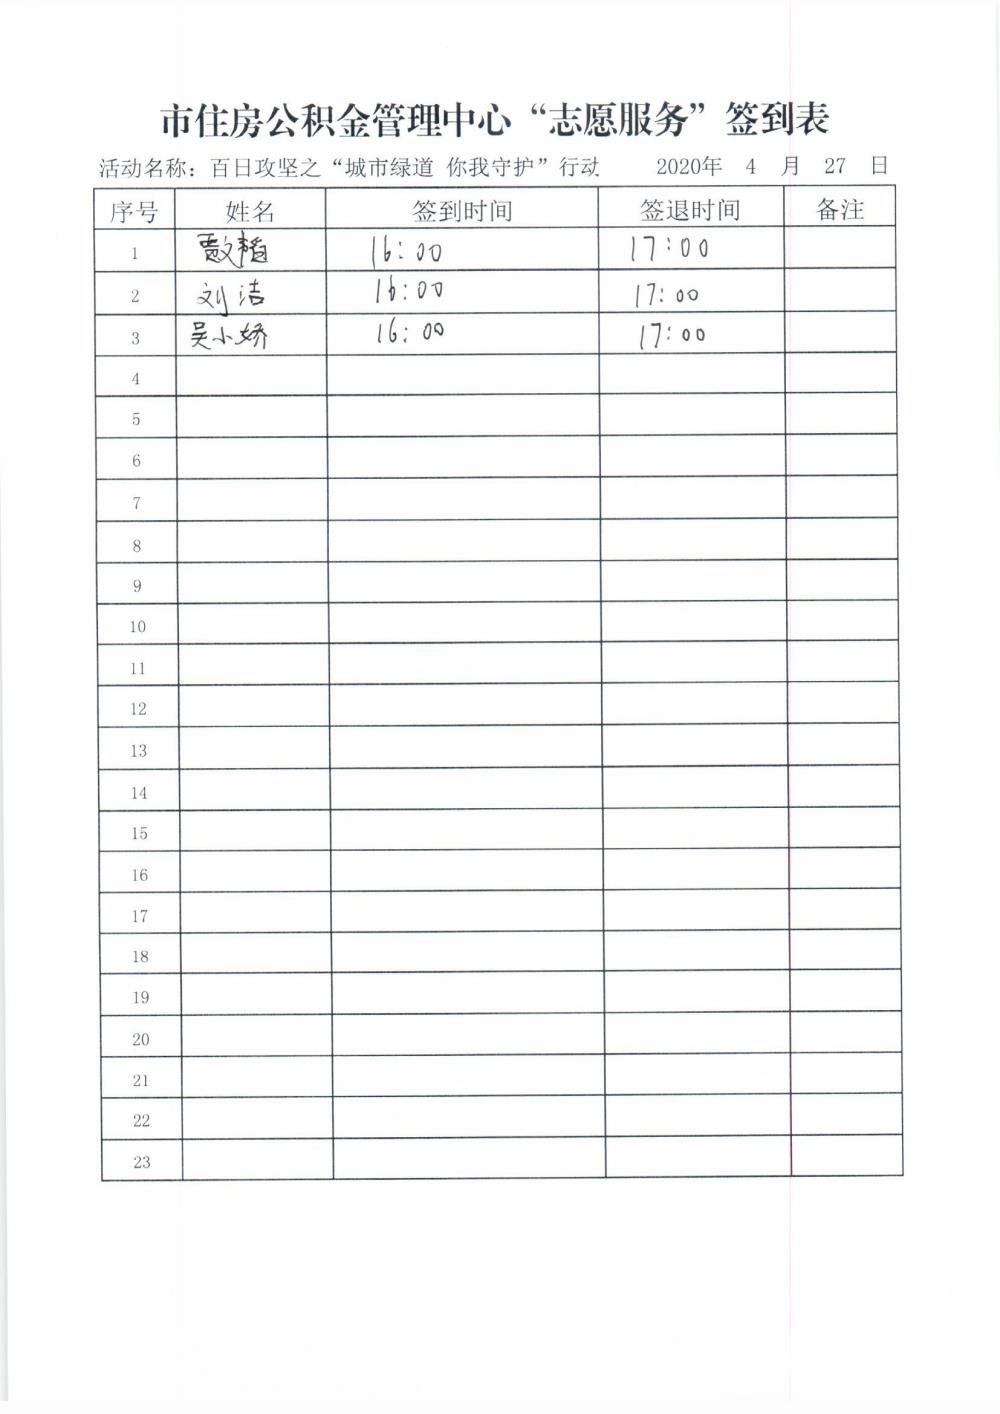 市住房公积金管理中心“志愿服务”签到表
活动名称：百日攻坚之“城市绿道 你我守护”行动 2020年 4 月 27 日
序号 姓名 签到时间 签退时间 备注
1 16:00 17:00
2 刘洁 16:00 17:00
3 吴小娇 16:00 17:00
4
5
6
7
8
9
10
11
12
13
14
15
16
17
18
19
20
21
22
23